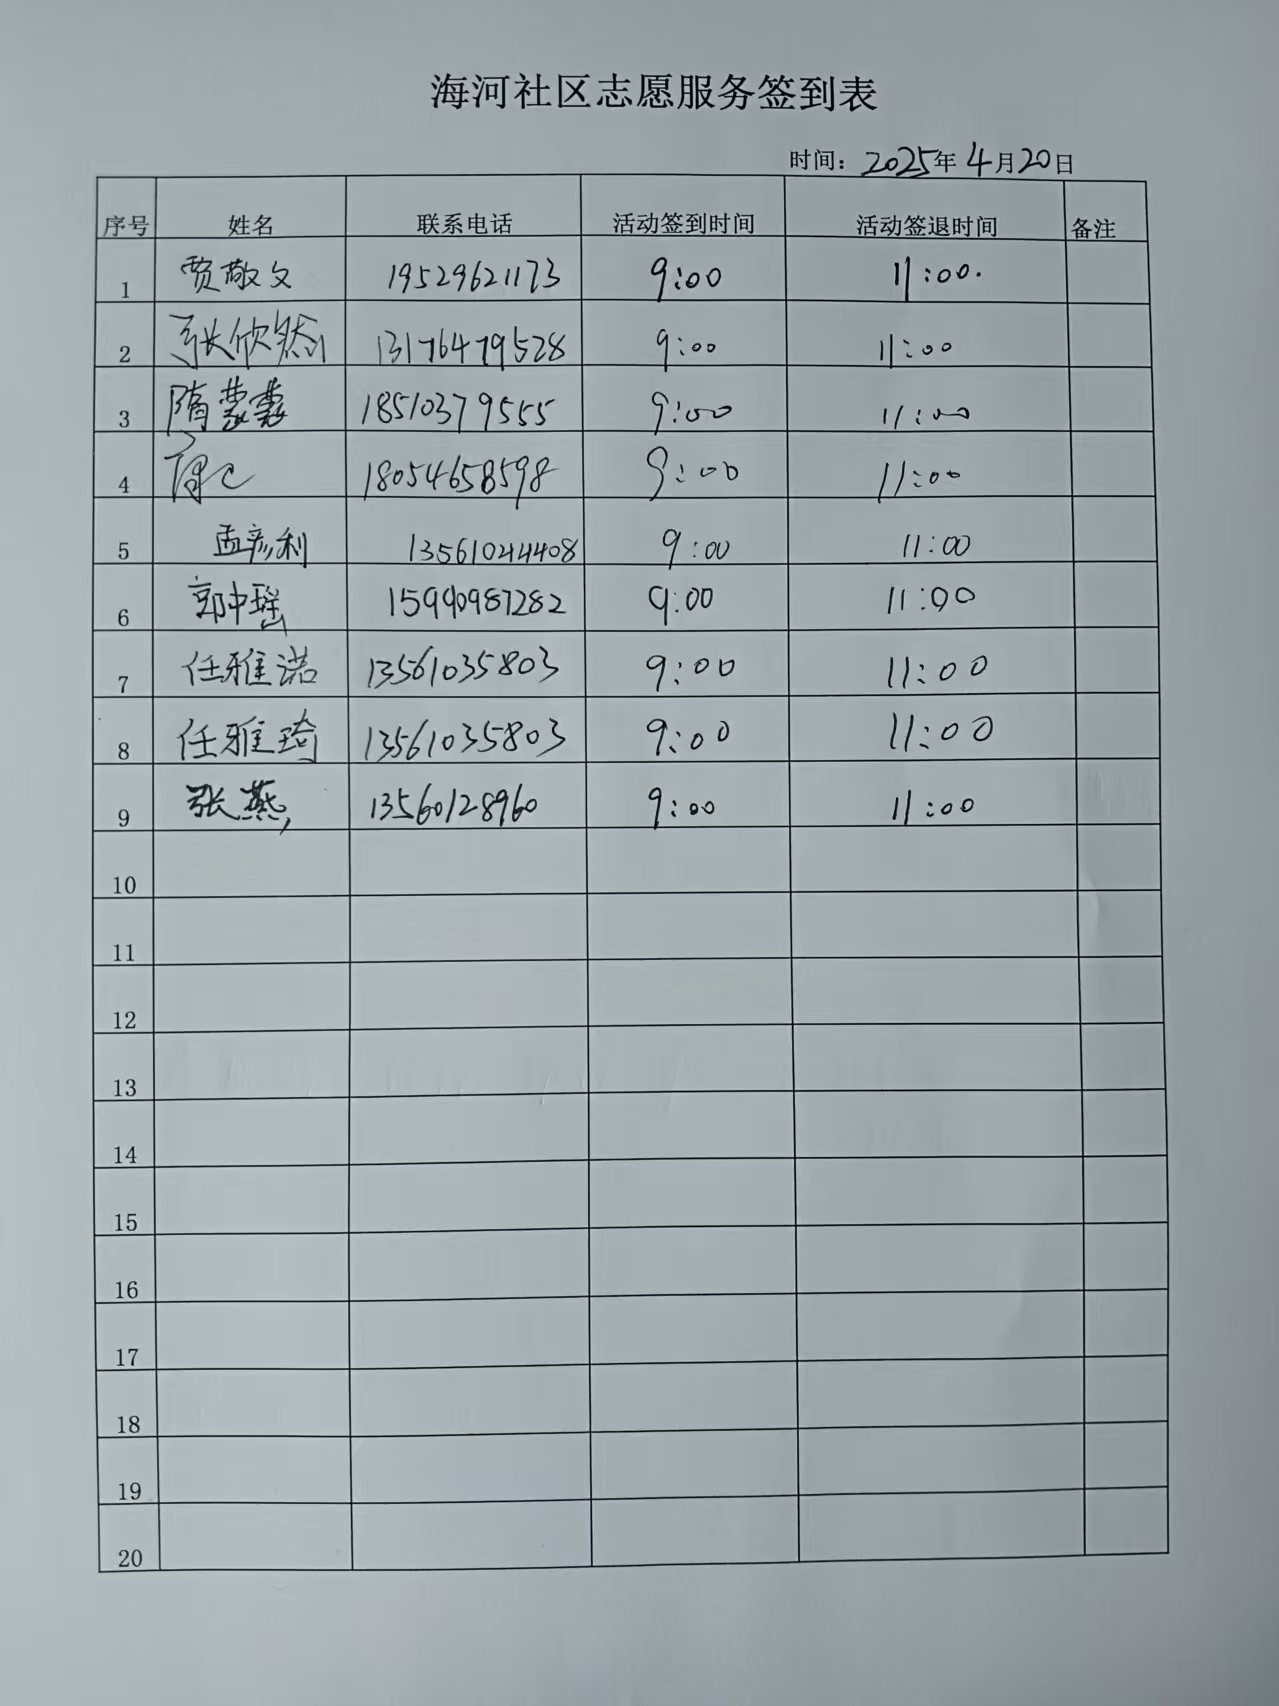 海河社区志愿服务签到表
时间：2025年4月20日
序号 姓名 联系电话 活动签到时间 活动签退时间 备注
1 贾敬文 19529621173 9:00 11:00.
2 张欣然 13176479528 9:00 11:00
3 隋蒙蒙 18510379555 9:00 11:00
4 18054658598 9:00 11:00
5 孟彦利 13561044408 9:00 11:00
6 郭中瑶 15990987282 9:00 11:00
7 任雅诺 13561035803 9:00 11:00
8 任雅琦 13561035803 9:00 11:00
9 张燕 13560128960 9:00 11:00
10
11
12
13
14
15
16
17
18
19
20